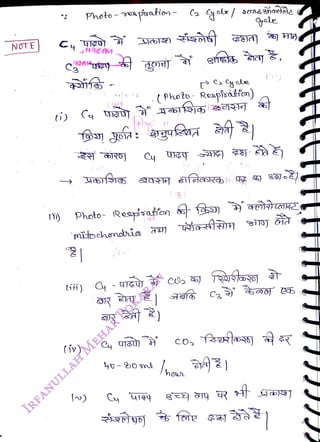 : Photo-respiration - C₂ Cycle /
Cycle
NOTE
C₄ पादपो में प्रकाश संश्लेषी दक्षता का मान
C₃ की तुलना में अधिक होता है,
क्योंकि -
→ C₂ Cycle
(Photo-Respiration)
(i) C₄ पादपो में प्रकाशिक श्वसन की
क्रिया पूर्णत: अनुपस्थित होती है|
इस कारण C₄ पादप ज्यादा दक्ष होते है|
→ प्रकाशिक श्वसन हानिकारक है|
(ii) Photo-Respiration की क्रिया में क्लोरोप्लास्ट,
mitochondria तथा परॉक्सीसोम भाग लेते
है|
(iii) C₄ - पादपो में CO₂ का स्थिरीकरण दो
बार होता है| जबकि C₃ में केवल एक
बार होती है|
(iv) C₄ पादपो में CO₂ स्थिरीकरण की दर
40-80 ml / hour होती है|
(v) C₄ पादप उच्च ताप पर भी प्रकाश
संश्लेषण के लिए दक्ष होते है|
IRFANULLAH MEHAR